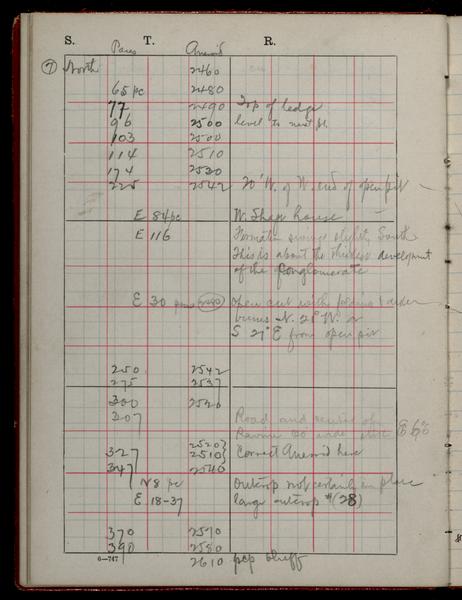 S. T. R.
Paces Aneroid
7 North 2460
65 pc 2480
77 2490 Top of ledge
96 2500 level to next pt.
103 2500
114 2510
174 2520
225 2542 20' W. of W. end of open pit
E 84 pc W. Shaft house
E 116 Formation swings slightly South
This is about the thickest development
of the Conglomerate
E 30 open cut with
N. 21° W. or
S 21° E from open pit
250 2542
275 2537
300 2526
307 Road and center of
Ravine 20 wide
2520
327 2510 Correct Aneroid here
347 2540
N 8 pc Outcrop not certainly in place
E 18-37 large outcrop #(28)
370 2570
390 2580
6-747
2610 bluff